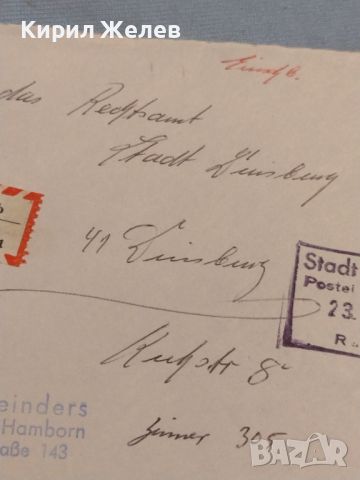 Кирил Желев
Einschr.
das Rechtsamt
Stadt Duisburg
41 Duisburg
Stadt
Postei
23.
R
Kuhstr 8
Zimmer 305
einders
Hamborn
raße 143
bazar